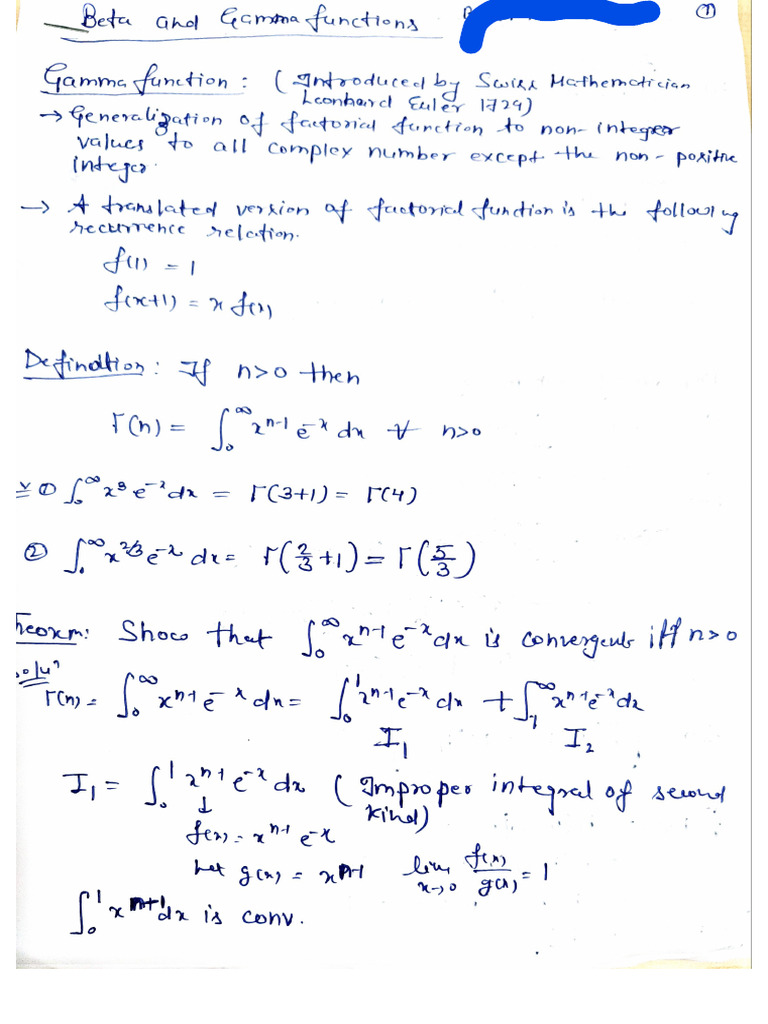 Beta and Gamma functions
①
Gamma function : ( Introduced by Swiss Mathematician
Leonhard Euler 1729)
→ Generalization of factorial function to non-integer
values to all complex number except the non-positive
integer.
→ A translated version of factorial function is the following
recurrence relation.
f(1) = 1
f(x+1) = x f(x)
Definition : If n>0 then
Γ(n) = ∫₀^∞ x^{n-1} e^{-x} dx ∀ n>0
① ∫₀^∞ x³ e^{-x} dx = Γ(3+1) = Γ(4)
② ∫₀^∞ x^{2/3} e^{-x} dx = Γ(2/3 +1) = Γ(5/3)
heorm: Show that ∫₀^∞ x^{n-1} e^{-x} dx is convergent iff n>0
Γ(n) = ∫₀^∞ x^{n-1} e^{-x} dx = ∫₀^1 x^{n-1} e^{-x} dx + ∫₁^∞ x^{n-1} e^{-x} dx
I₁ I₂
I₁ = ∫₀^1 x^{n-1} e^{-x} dx ( Improper integral of second
↓ kind)
f(x) = x^{n-1} e^{-x}
Let g(x) = x^{n-1} lim x→0 f(x)/g(x) = 1
∫₀^1 dx is conv.